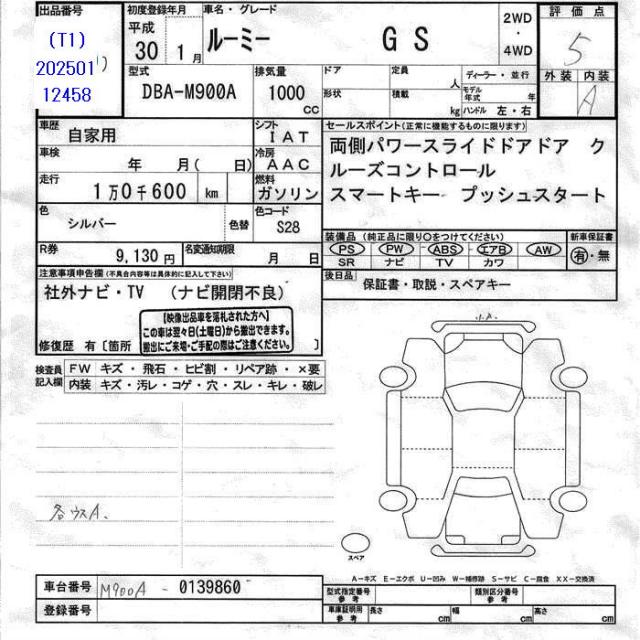 出品番号
(T1)
202501
12458
初度登録年月
平成
30 1月
車名・グレード
ルーミー GS
2WD
・
4WD
評価点
5
外装 内装
A
型式
DBA-M900A
排気量
1000
cc
ドア 定員 人
形状 積載 kg
ディーラー・並行
モデル年式 年
ハンドル 左・右
車歴
自家用
シフト
IAT
車検
年 月( 日)
冷房
AAC
走行
1万0千600 km
燃料
ガソリン
色
シルバー
色替
色コード
S28
R券
9,130円
名変通知期限
月 日
セールスポイント(正常に機能するものに限ります)
両側パワースライドドアドア ク
ルーズコントロール
スマートキー プッシュスタート
装備品 (純正品に限り○をつけてください)
PS PW ABS エアB AW
SR ナビ TV カワ
新車保証書
有・無
後日品
保証書・取説・スペアキー
注意事項申告欄(不具合内容等は具体的に記入して下さい)
社外ナビ・TV (ナビ開閉不良)
【映像出品車を落札された方へ】
この車は翌々日(土曜日)から搬出できます。
搬出にご来場・ご手配の際はご注意ください。
修復歴 有〔箇所 〕
検査員
記入欄
FW キズ・飛石・ヒビ割・リペア跡・×要
内装 キズ・汚レ・コゲ・穴・スレ・キレ・破レ
各ウスA.
スペア
A-キズ E-エクボ U-凹み W-補修跡 S-サビ C-腐食 XX-交換済
車台番号 M900A - 0139860
登録番号
型式指定番号
参考
類別区分番号
参考
車庫証明用
参考
長さ cm 幅 cm 高さ cm